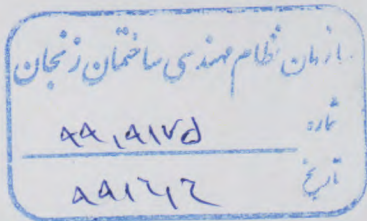 سازمان نظام مهندسی ساختمان زنجان
شماره: ۹۹,۹۱۷۵
تاریخ ۹۹/۲/۲